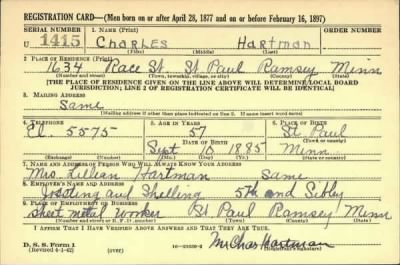 REGISTRATION CARD—(Men born on or after April 28, 1877 and on or before February 16, 1897)
SERIAL NUMBER 1. NAME (Print) ORDER NUMBER
U 1415 Charles Hartman
(First) (Middle) (Last)
2. PLACE OF RESIDENCE (Print)
1634 Race St. St Paul Ramsey Minn
(Number and street) (Town, township, village, or city) (County) (State)
[THE PLACE OF RESIDENCE GIVEN ON THE LINE ABOVE WILL DETERMINE LOCAL BOARD
JURISDICTION; LINE 2 OF REGISTRATION CERTIFICATE WILL BE IDENTICAL]
3. MAILING ADDRESS
Same
[Mailing address if other than place indicated on line 2. If same insert word same]
4. TELEPHONE 5. AGE IN YEARS 6. PLACE OF BIRTH
El. 5575 57 St Paul
DATE OF BIRTH (Town or county)
Sept 10 1885 Minn
(Exchange) (Number) (Mo.) (Day) (Yr.) (State or country)
7. NAME AND ADDRESS OF PERSON WHO WILL ALWAYS KNOW YOUR ADDRESS
Mrs. Lillian Hartman Same
8. EMPLOYER'S NAME AND ADDRESS
and 5th and Sibley
9. PLACE OF EMPLOYMENT OR BUSINESS
Sheet metal worker St Paul Ramsey Minn
(Number and street or R. F. D. number) (Town) (County) (State)
I AFFIRM THAT I HAVE VERIFIED ABOVE ANSWERS AND THAT THEY ARE TRUE.
D. S. S. Form 1 Mr Chas Hartman
(Revised 4-1-42) (over) (Registrant's signature)